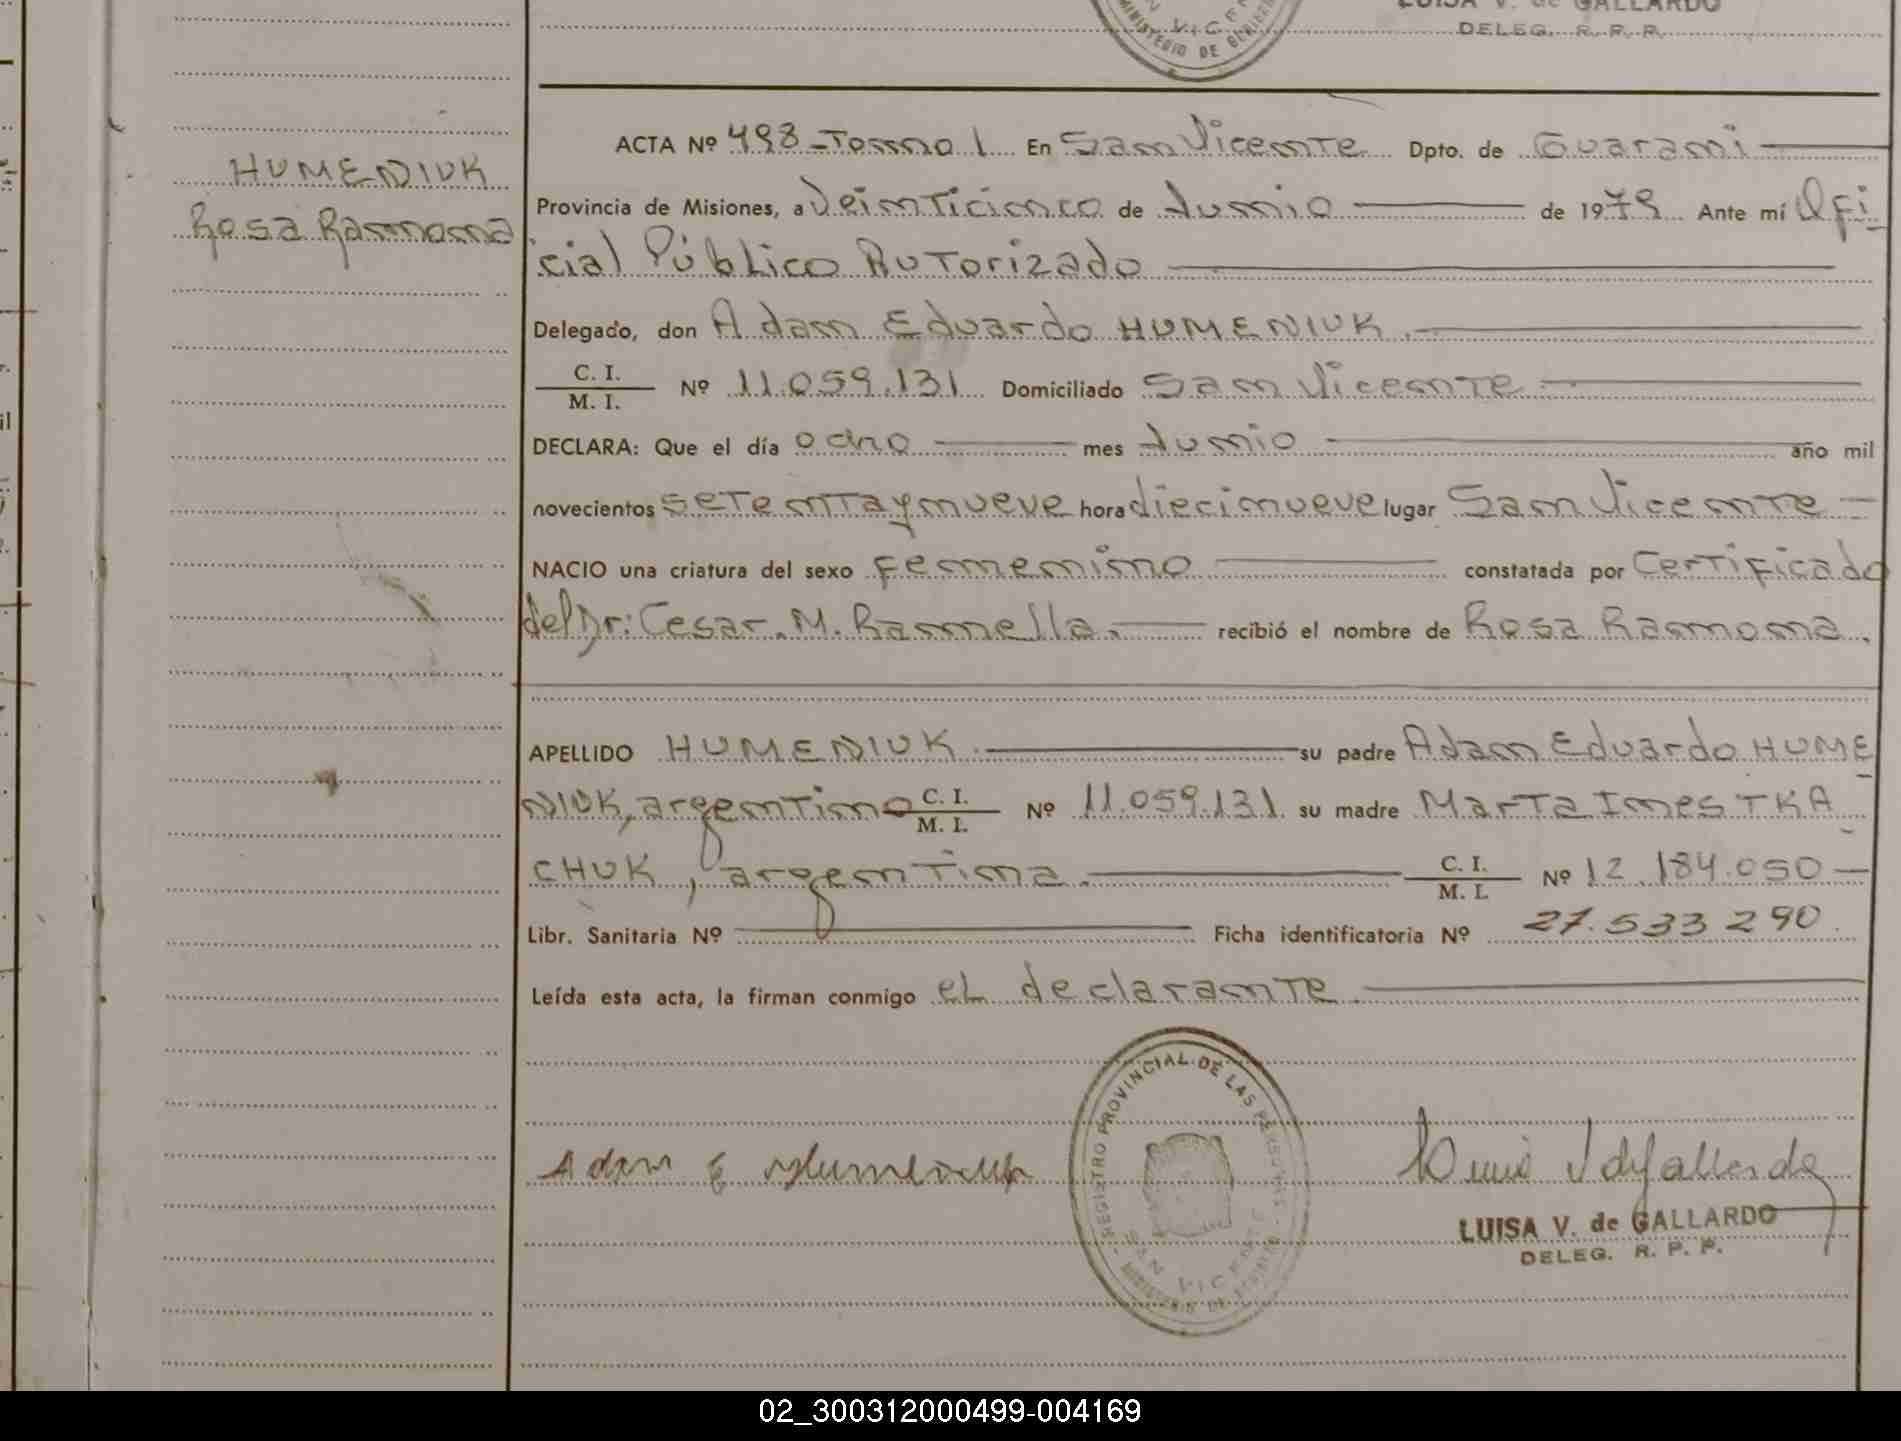 LUISA V. de GALLARDO
DELEG. R. P. P.
SAN VICENTE
MINISTERIO DE GOBIERNO
HUMENIUK
Rosa Ramona
ACTA Nº 498 - Tomo 1 En San Vicente Dpto. de Guaraní
Provincia de Misiones, a Veinticinco de Junio de 1979 Ante mí Ofi
cial Público Autorizado
Delegado, don Adam Eduardo HUMENIUK.
C. I. / M. I. Nº 11.059.131 Domiciliado San Vicente
DECLARA: Que el día ocho mes Junio año mil
novecientos setenta y nueve hora diecinueve lugar San Vicente
NACIO una criatura del sexo femenino constatada por Certificado
del Dr: Cesar. M. Ramella. recibió el nombre de Rosa Ramona.
APELLIDO HUMENIUK. su padre Adam Eduardo HUME
NIUK, argentino C. I. / M. I. Nº 11.059.131 su madre Marta Ines TKA
CHUK, argentina. C. I. / M. I. Nº 12.184.050
Libr. Sanitaria Nº Ficha identificatoria Nº 27.533290.
Leída esta acta, la firman conmigo el declarante.
REGISTRO PROVINCIAL DE LAS PERSONAS
SAN VICENTE
MINISTERIO DE GOBIERNO
Adam E Humeniuk
LUISA V. de GALLARDO
DELEG. R. P. P.
02_300312000499-004169